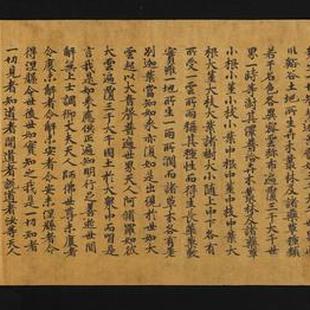 川谿谷土地所生卉木叢林及諸藥草種類
若干名色各異密雲彌布遍覆三千大千世
界一時等澍其澤普洽卉木叢林及諸藥草
小根小莖小枝小葉中根中莖中枝中葉大
根大莖大枝大葉諸樹大小隨上中下各有
所受一雲所雨稱其種性而得生長華菓敷
實雖一地所生一雨所潤而諸草木各有差
別迦葉當知如來亦復如是出現於世如大
雲起以大音聲普遍世界天人阿修羅如彼
大雲遍覆三千大千國土於大衆中而唱是
言我是如來應供正遍知明行足善逝世間
解無上士調御丈夫天人師佛世尊未度者
令度未解者令解未安者令安未涅槃者令
得涅槃今世後世如實知之我是一切知者
一切見者知道者開道者說道者汝等天人